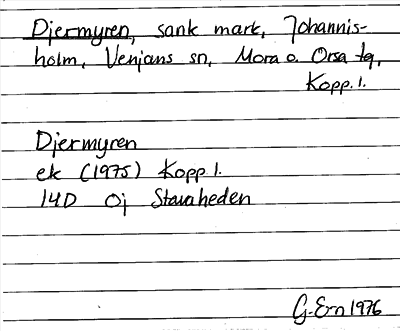 Djermyren, sank mark, Johannis-
holm, Venjans sn, Mora o. Orsa tg,
Kopp. l.
Djermyren
ek (1975) Kopp l.
14D 0j Stavaheden
G. Ern 1976